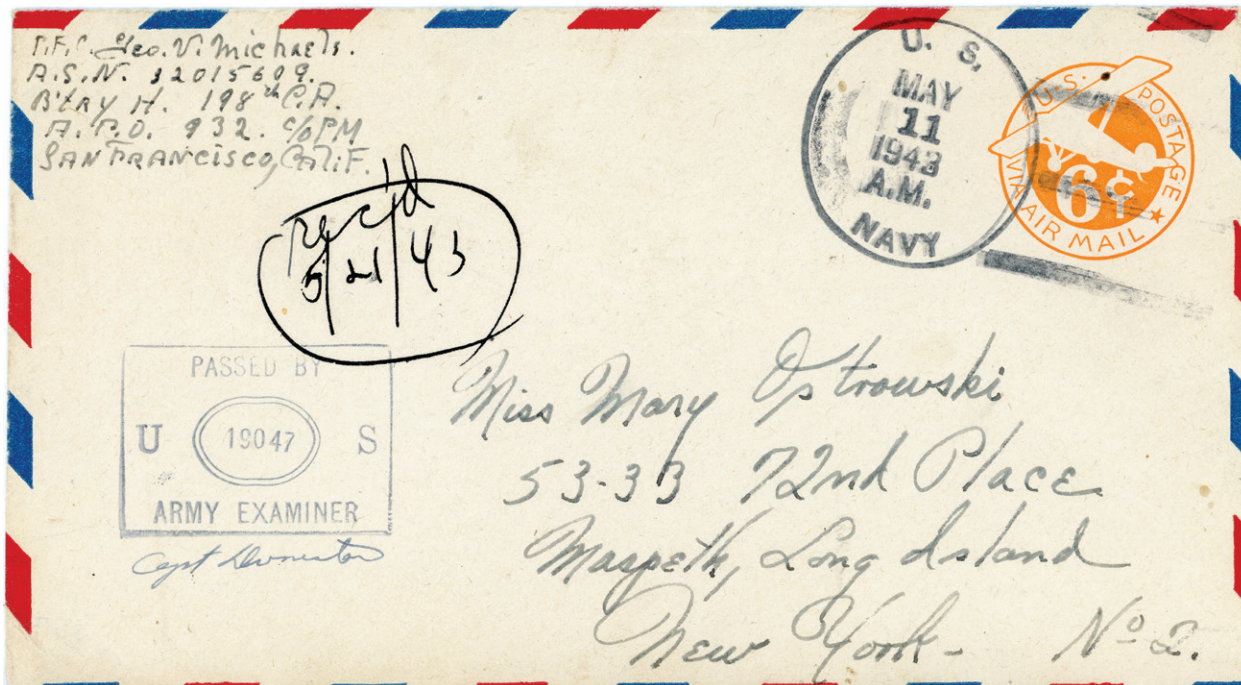 P.F.C. Geo. V. Michaels.
A.S.N. 32015609.
B'try H. 198th C.A.
A.P.O. 932. c/o PM
San Francisco, Calif.
U. S.
MAY
11
1943
A.M.
NAVY
U.S. POSTAGE
6¢
VIA AIR MAIL
Rec'd
5/21/43
PASSED BY
U 19047 S
ARMY EXAMINER
Capt
Miss Mary Ostrowski
53-33 72nd Place
Maspeth, Long Island
New York - No 2.